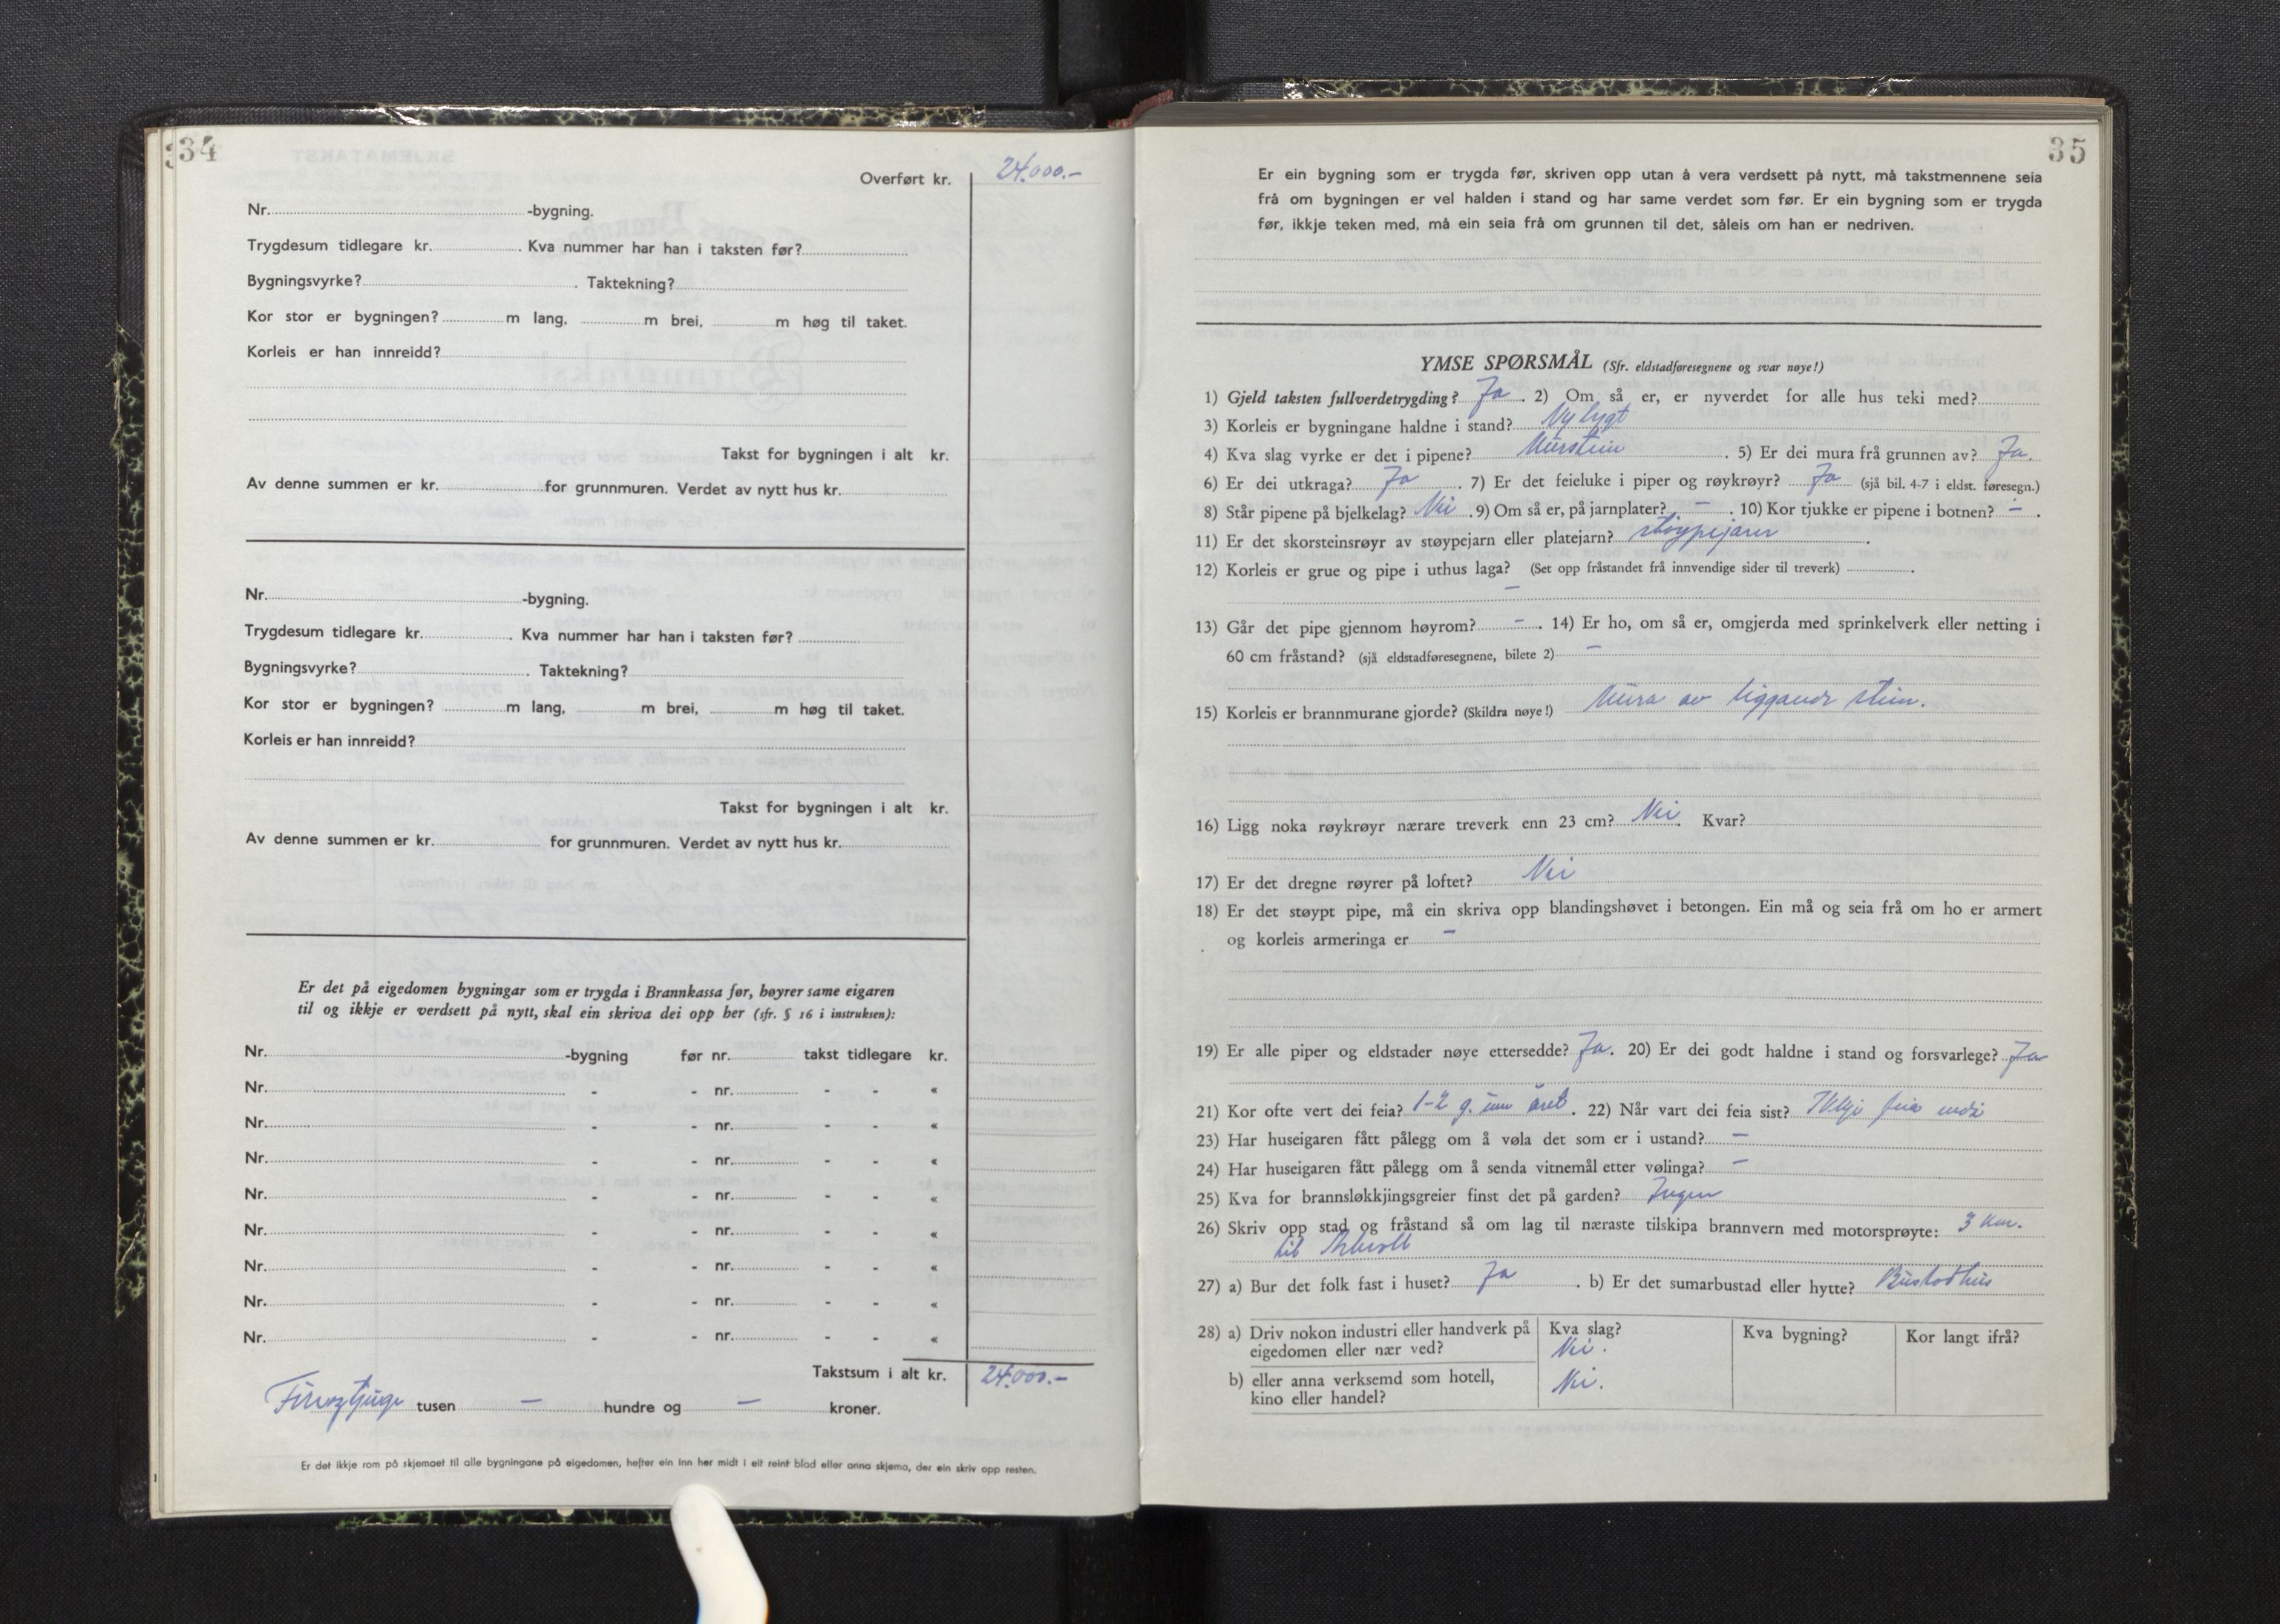 34
Overført kr. 24.000.-
Nr. -bygning.
Trygdesum tidlegare kr. . Kva nummer har han i taksten før?
Bygningsvyrke? . Taktekning?
Kor stor er bygningen? m lang, m brei, m høg til taket.
Korleis er han innreidd?
Takst for bygningen i alt kr.
Av denne summen er kr. for grunnmuren. Verdet av nytt hus kr.
Nr. -bygning.
Trygdesum tidlegare kr. . Kva nummer har han i taksten før?
Bygningsvyrke? . Taktekning?
Kor stor er bygningen? m lang, m brei, m høg til taket.
Korleis er han innreidd?
Takst for bygningen i alt kr.
Av denne summen er kr. for grunnmuren. Verdet av nytt hus kr.
Er det på eigedomen bygningar som er trygda i Brannkassa før, høyrer same eigaren
til og ikkje er verdsett på nytt, skal ein skriva dei opp her (sfr. § 16 i instruksen):
Nr. -bygning før nr. takst tidlegare kr.
Nr. - - nr. - - «
Nr. - - nr. - - «
Nr. - - nr. - - «
Nr. - - nr. - - «
Nr. - - nr. - - «
Nr. - - nr. - - «
Nr. - - nr. - - «
Nr. - - nr. - - «
Takstsum i alt kr. 24.000.-
Firogtjuge tusen — hundre og — kroner.
Er det ikkje rom på skjemaet til alle bygningane på eigedomen, hefter ein inn her midt i eit reint blad eller anna skjema, der ein skriv opp resten.
35
Er ein bygning som er trygda før, skriven opp utan å vera verdsett på nytt, må takstmennene seia
frå om bygningen er vel halden i stand og har same verdet som før. Er ein bygning som er trygda
før, ikkje teken med, må ein seia frå om grunnen til det, såleis om han er nedriven.
YMSE SPØRSMÅL (Sfr. eldstadføresegnene og svar nøye!)
1) Gjeld taksten fullverdetrygding? Ja . 2) Om så er, er nyverdet for alle hus teki med?
3) Korleis er bygningane haldne i stand? Nybygt
4) Kva slag vyrke er det i pipene? Murstein . 5) Er dei mura frå grunnen av? Ja.
6) Er dei utkraga? Ja . 7) Er det feieluke i piper og røykrøyr? Ja (sjå bil. 4-7 i eldst. føresegn.)
8) Står pipene på bjelkelag? Nei . 9) Om så er, på jarnplater? - . 10) Kor tjukke er pipene i botnen? - .
11) Er det skorsteinsrøyr av støypejarn eller platejarn? støypejarn .
12) Korleis er grue og pipe i uthus laga? (Set opp fråstandet frå innvendige sider til treverk) .
-
13) Går det pipe gjennom høyrom? - . 14) Er ho, om så er, omgjerda med sprinkelverk eller netting i
60 cm fråstand? (sjå eldstadføresegnene, bilete 2) -
15) Korleis er brannmurane gjorde? (Skildra nøye!) Mura av liggande stein.
16) Ligg noka røykrøyr nærare treverk enn 23 cm? Nei. Kvar?
17) Er det dregne røyrer på loftet? Nei
18) Er det støypt pipe, må ein skriva opp blandingshøvet i betongen. Ein må og seia frå om ho er armert
og korleis armeringa er -
19) Er alle piper og eldstader nøye ettersedde? Ja. 20) Er dei godt haldne i stand og forsvarlege? Ja
21) Kor ofte vert dei feia? 1-2 g. um året . 22) Når vart dei feia sist? Ikkje feia endå
23) Har huseigaren fått pålegg om å vøla det som er i ustand? -
24) Har huseigaren fått pålegg om å senda vitnemål etter vølinga? -
25) Kva for brannsløkkjingsgreier finst det på garden? Ingen
26) Skriv opp stad og fråstand så om lag til næraste tilskipa brannvern med motorsprøyte: 3 km.
til
27) a) Bur det folk fast i huset? Ja . b) Er det sumarbustad eller hytte? Bustadhus
28) a) Driv nokon industri eller handverk på eigedomen eller nær ved? Kva slag? Nei. Kva bygning? Kor langt ifrå?
b) eller anna verksemd som hotell, kino eller handel? Nei.